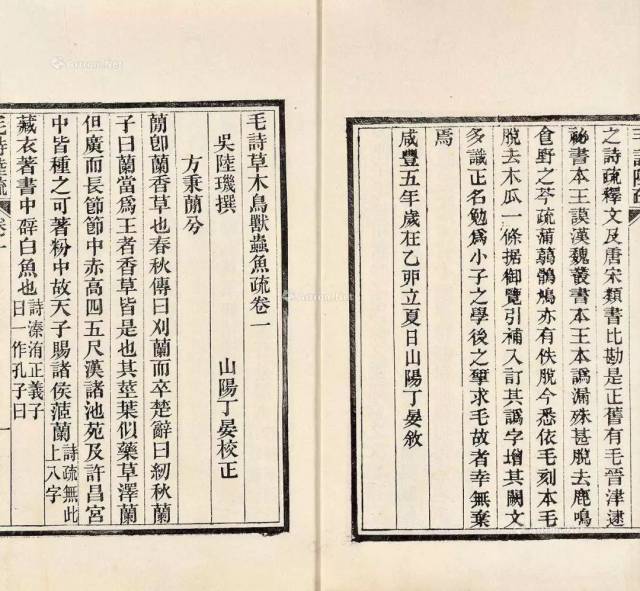 之詩疏釋文及唐宋類書比勘是正舊有毛晉津逮
祕書本王謨漢魏叢書本王本譌漏殊甚脫去鹿鳴
食野之芩疏蒲蒻鶻鳩亦有佚脫今悉依毛刻本毛
脫去木瓜一條据御覽引補入訂其譌字增其闕文
多識正名勉爲小子之學後之肈求毛故者幸無棄
焉
咸豐五年歲在乙卯立夏日山陽丁晏敘
毛詩草木鳥獸蟲魚疏卷一
吳陸璣撰 山陽丁晏校正
方秉蕑兮
蕑卽蘭香草也春秋傳曰刈蘭而卒楚辭曰紉秋蘭
子曰蘭當爲王者香草皆是也其莖葉似藥草澤蘭
但廣而長節節中赤高四五尺漢諸池苑及許昌宮
中皆種之可著粉中故天子賜諸侯茝蘭 詩疏無此上八字
藏衣著書中辟白魚也 詩溱洧正義子曰一作孔子曰
毛詩陸疏 卷一